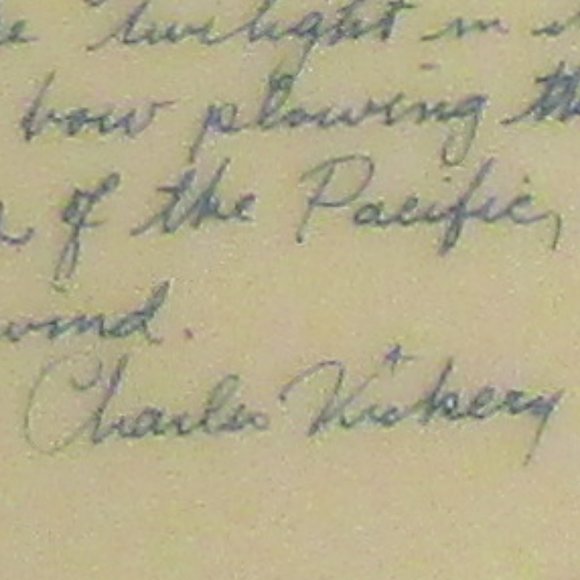 twilight in
bow plowing th
of the Pacific,
wind.
Charles Vickery